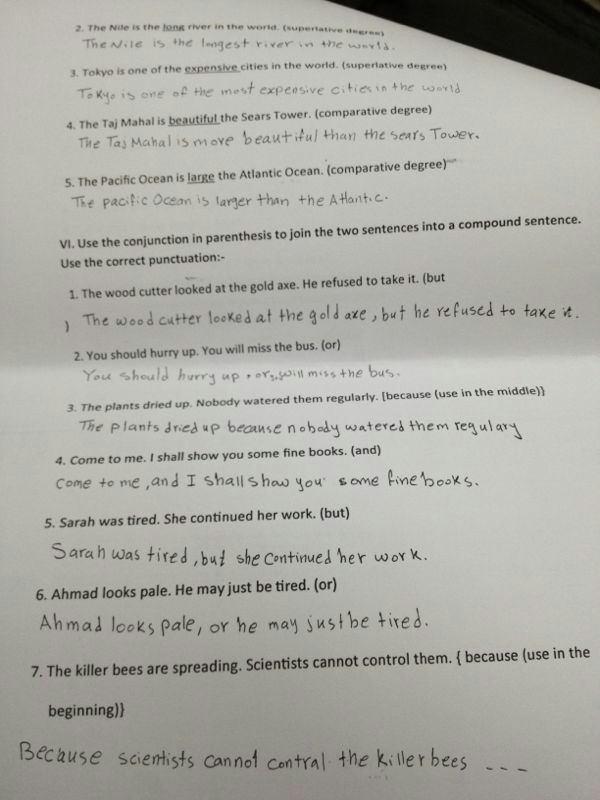 2. The Nile is the long river in the world. (superlative degree)
The Nile is the longest river in the world.
3. Tokyo is one of the expensive cities in the world. (superlative degree)
Tokyo is one of the most expensive cities in the world
4. The Taj Mahal is beautiful the Sears Tower. (comparative degree)
The Taj Mahal is more beautiful than the sears Tower.
5. The Pacific Ocean is large the Atlantic Ocean. (comparative degree)
The pacific Ocean is larger than the Atlantic.
VI. Use the conjunction in parenthesis to join the two sentences into a compound sentence.
Use the correct punctuation:-
1. The wood cutter looked at the gold axe. He refused to take it. (but
) The wood cutter looked at the gold axe, but he refused to take it.
2. You should hurry up. You will miss the bus. (or)
You should hurry up, or will miss the bus.
3. The plants dried up. Nobody watered them regularly. [because (use in the middle)}
The plants dried up because nobody watered them regulary
4. Come to me. I shall show you some fine books. (and)
Come to me, and I shall show you some fine books.
5. Sarah was tired. She continued her work. (but)
Sarah was tired, but she continued her work.
6. Ahmad looks pale. He may just be tired. (or)
Ahmad looks pale, or he may just be tired.
7. The killer bees are spreading. Scientists cannot control them. { because (use in the
beginning)}
Because scientists cannot contral the killer bees ---